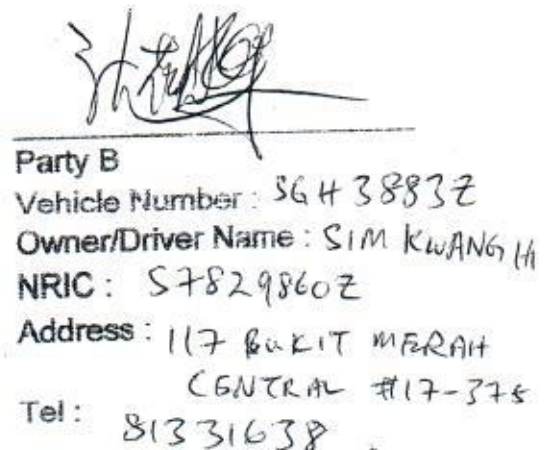 Party B
Vehicle Number : SGH 3883Z
Owner/Driver Name : SIM KWANG HI
NRIC : S7829860Z
Address : 117 BUKIT MERAH
CENTRAL #17-375
Tel : 81331638